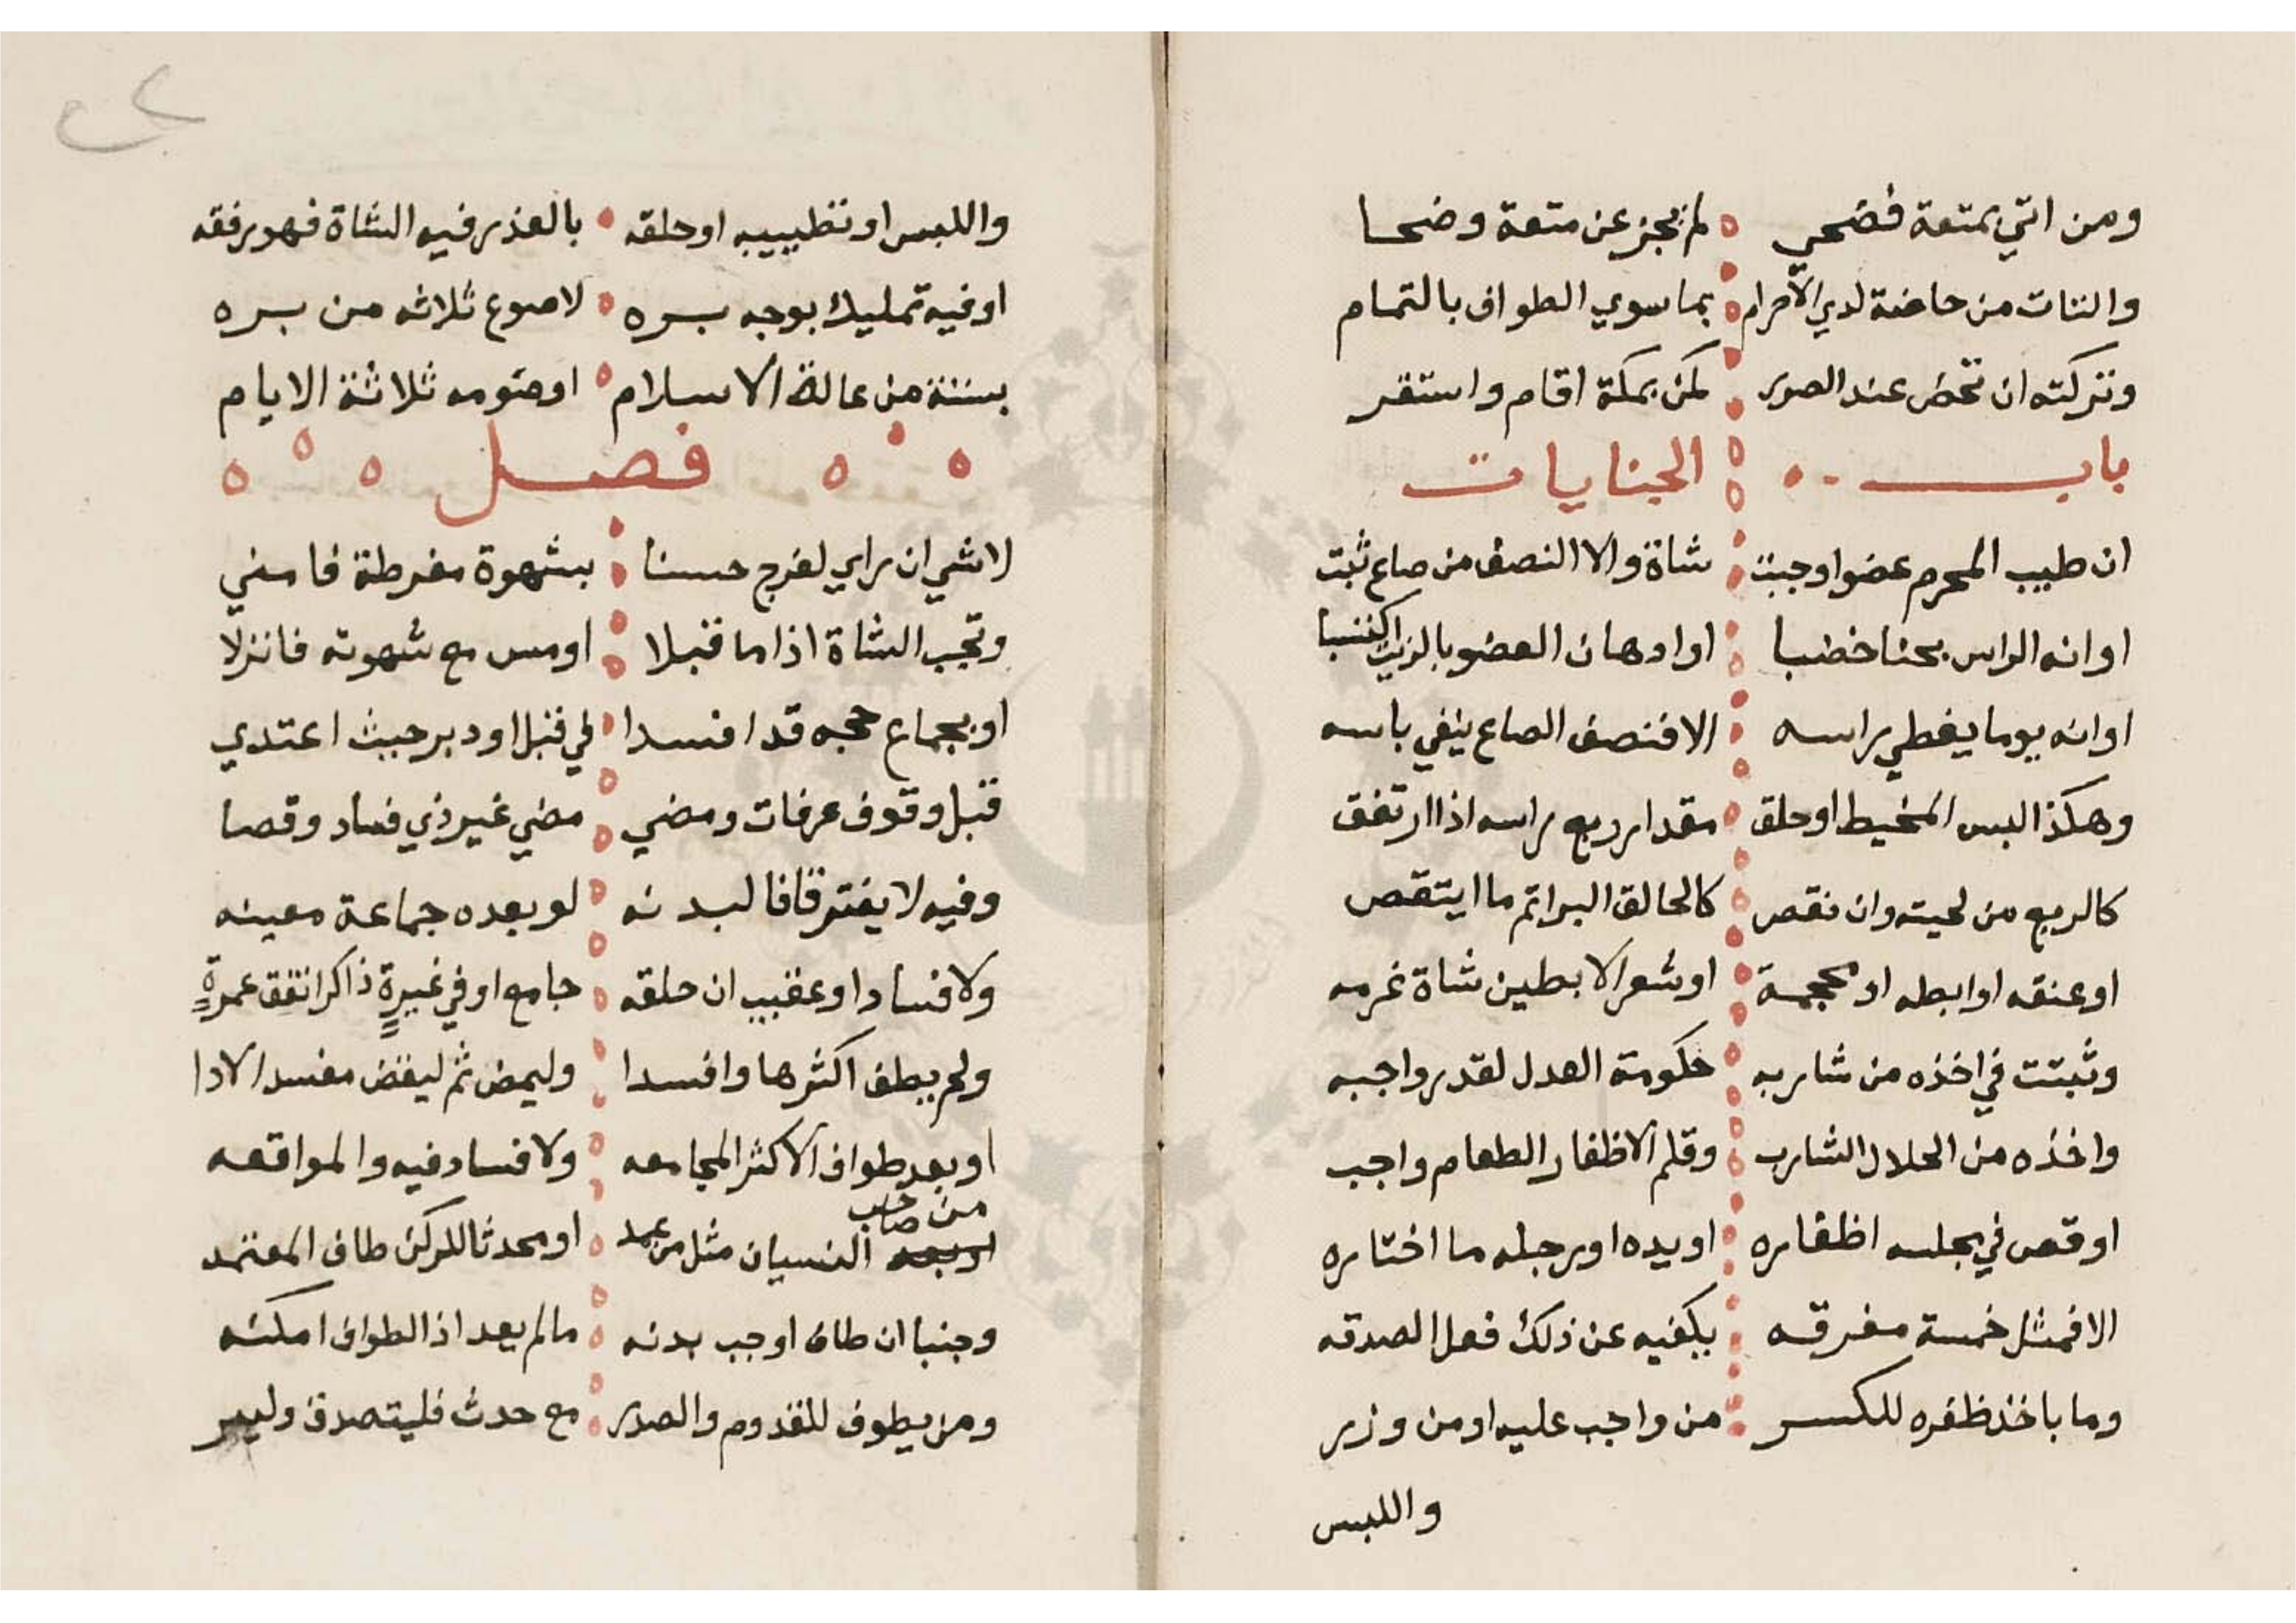 ومن اتي بمتعة فضحي لم يجز عن متعة وضحا
واتات من حاضة لدي الاحرام بما سوي الطواف بالتمام
وتركته ان تحض عند الصدر لمن بمكة اقام واستقر
باب الجنايات
ان طيب المحرم عضوا وجبت شاة والا النصف من صاع ثبت
او انه الراس بحنا خضبا او ادهان العضو بالزيت اكتسبا
او انه يوما يغطي راسه الا فنصف الصاع ينفي باسه
وهكذا لبس المخيط او حلق مقدار ربع راسه اذا ارتفق
كالربع من لحيته وان نقص كالحالق البراتم ما ايتقص
او عنقه او ابطه او محجمة او شعر الابطين شاة غرمه
وثبتت في اخذه من شاربه حكومة العدل لقدر واجبه
واخذه من الحلال الشارب وقلم الاظفار الطعام واجب
او قص في مجلسه اظفاره او يده او رجله ما اختاره
الا فمثل خمسة مفرقه يكفيه عن ذلك فعل الصدقه
وما باخذ ظفره للكسر من واجب عليه او من وزر
واللبس
واللبس او تطييبه او حلقه بالعذر فيه الشاة فهو رفقه
او فيه تمليك بوجه بره لاصوع ثلاثه من بره
بستة من عالة الاسلام او صومه ثلاثة الايام
فصل
لا شي ان راي لفرج حسنا بشهوة مفرطة فامني
وتجب الشاة اذا ما قبلا او مس مع شهوته فانزلا
او بجماع حجه قد افسدا في قبل او دبر حيث اعتدي
قبل وقوف عرفات ومضي مضي غير ذي فساد وقضا
وفيه لا يفترقا فالبدنه لو بعده جماعة معينه
ولا فساد او عقيب ان حلقه جامع او في غيرة ذاكر اتفق عمرة
ولم يطف اكثرها وافسدا وليمض ثم ليقض مفسد الادا
او بعد طواف الاكثر المجامعه ولا فساد فيه والمواقعه
من صاحب النسيان مثل من عمد او محدثا للركن طاف المعتمد
وجنبا ان طاف اوجب بدنه ما لم يعد اذا الطواف امكنه
ومن يطوف للقدوم والصدر مع حدث فليتصدق وليبر